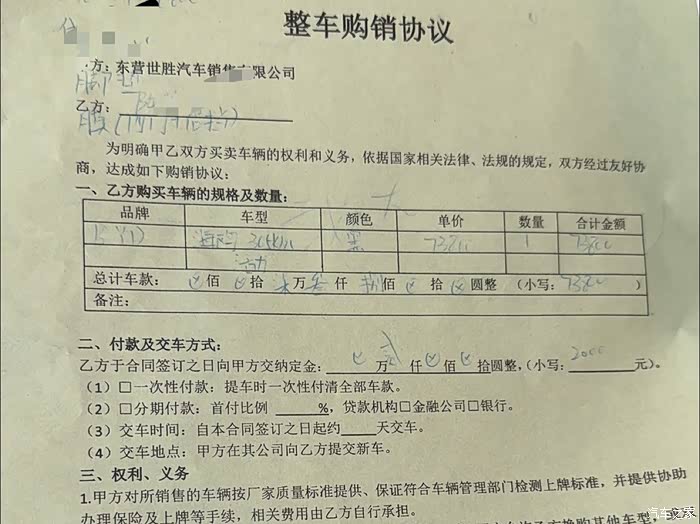 整车购销协议
方：东营世胜汽车销售有限公司
乙方：
为明确甲乙双方买卖车辆的权利和义务，依据国家相关法律、法规的规定，双方经过友好协
商，达成如下购销协议：
一、乙方购买车辆的规格及数量：
品牌 车型 颜色 单价 数量 合计金额
305km 黑 73800 1 73800
总计车款： 佰 拾 柒万叁仟 捌佰 拾 圆整 （小写：73800）
备注：
二、付款及交车方式：
乙方于合同签订之日向甲方交纳定金： 万 贰仟 佰 拾圆整，（小写：2000 元）。
（1）□一次性付款：提车时一次性付清全部车款。
（2）□分期付款：首付比例 %，贷款机构□金融公司□银行。
（3）交车时间：自本合同签订之日起约 天交车。
（4）交车地点：甲方在其公司向乙方提交新车。
三、权利、义务
1.甲方对所销售的车辆按厂家质量标准提供、保证符合车辆管理部门检测上牌标准，并提供协助
办理保险及上牌等手续，相关费用由乙方自行承担。
汽车之家